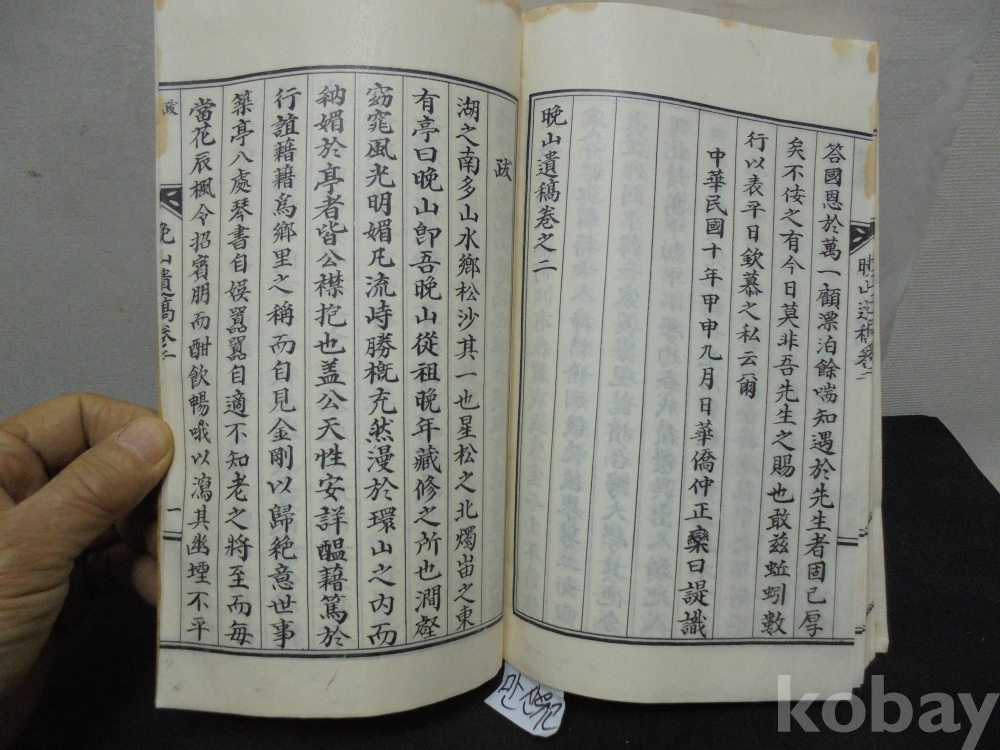 答國恩於萬一顧漂泊餘喘知遇於先生者固已厚
矣不佞之有今日莫非吾先生之賜也敢玆蚯蚓數
行以表平日欽慕之私云爾
中華民國十年甲申九月日華僑仲正欒曰諟識
晚山遺稿卷之二
跋
湖之南多山水鄉松沙其一也星松之北燭宙之東
有亭曰晚山卽吾晚山從祖晚年藏修之所也澗壑
窈窕風光明媚凡流峙勝槪充然漫於環山之內而
納媚於亭者皆公襟抱也盖公天性安詳醞藉篤於
行誼藉藉爲鄉里之稱而自見金剛以歸絶意世事
築亭八處琴書自娱囂囂自適不知老之將至而每
當花辰楓令招賓朋而酣飮暢哦以瀉其幽堙不平
跋
晚山遺稿卷之二
一
만산유고
kobay